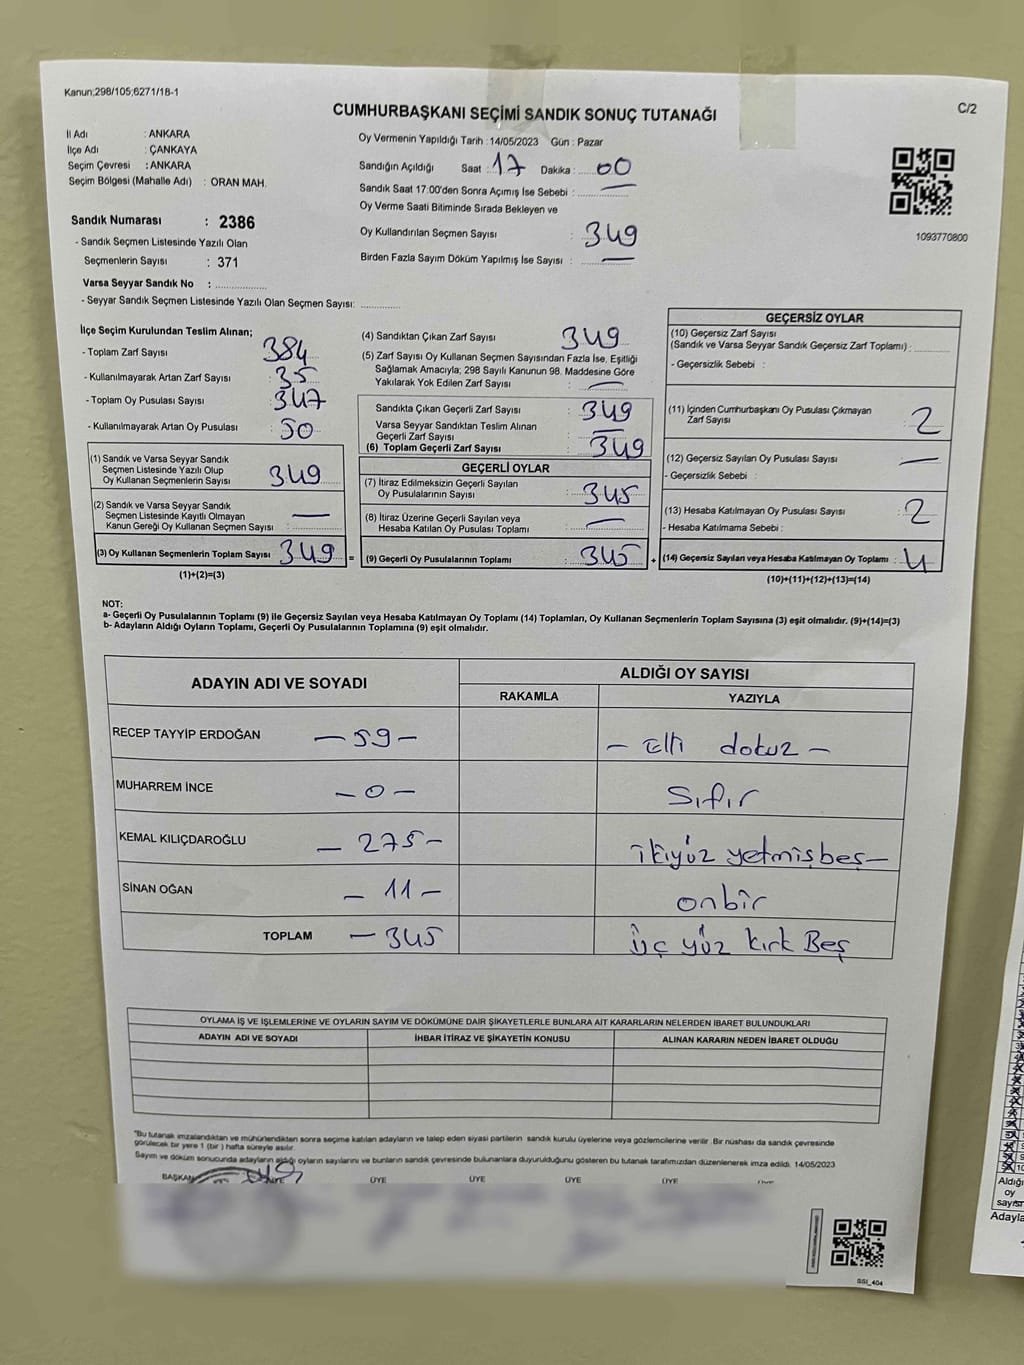 Kanun;298/105;6271/18-1
C/2
CUMHURBAŞKANI SEÇİMİ SANDIK SONUÇ TUTANAĞI
İl Adı : ANKARA
İlçe Adı : ÇANKAYA
Seçim Çevresi : ANKARA
Seçim Bölgesi (Mahalle Adı) : ORAN MAH.
Oy Vermenin Yapıldığı Tarih : 14/05/2023 Gün : Pazar
Sandığın Açıldığı Saat : 17 Dakika : 00
Sandık Saat 17:00'den Sonra Açımış İse Sebebi : —
Oy Verme Saati Bitiminde Sırada Bekleyen ve
Oy Kullandırılan Seçmen Sayısı : 349
Birden Fazla Sayım Döküm Yapılmış İse Sayısı : —
1093770800
Sandık Numarası : 2386
- Sandık Seçmen Listesinde Yazılı Olan
Seçmenlerin Sayısı : 371
Varsa Seyyar Sandık No :
- Seyyar Sandık Seçmen Listesinde Yazılı Olan Seçmen Sayısı:
İlçe Seçim Kurulundan Teslim Alınan;
- Toplam Zarf Sayısı : 384
- Kullanılmayarak Artan Zarf Sayısı : 35
- Toplam Oy Pusulası Sayısı : 347
- Kullanılmayarak Artan Oy Pusulası : 50
(1) Sandık ve Varsa Seyyar Sandık
Seçmen Listesinde Yazılı Olup
Oy Kullanan Seçmenlerin Sayısı : 349
(2) Sandık ve Varsa Seyyar Sandık
Seçmen Listesinde Kayıtlı Olmayan
Kanun Gereği Oy Kullanan Seçmen Sayısı : —
(3) Oy Kullanan Seçmenlerin Toplam Sayısı : 349 =
(1)+(2)=(3)
(4) Sandıktan Çıkan Zarf Sayısı 349
(5) Zarf Sayısı Oy Kullanan Seçmen Sayısından Fazla İse, Eşitliği
Sağlamak Amacıyla; 298 Sayılı Kanunun 98. Maddesine Göre
Yakılarak Yok Edilen Zarf Sayısı : —
Sandıkta Çıkan Geçerli Zarf Sayısı : 349
Varsa Seyyar Sandıktan Teslim Alınan
Geçerli Zarf Sayısı : —
(6) Toplam Geçerli Zarf Sayısı : 349
GEÇERLİ OYLAR
(7) İtiraz Edilmeksizin Geçerli Sayılan
Oy Pusulalarının Sayısı : 345
(8) İtiraz Üzerine Geçerli Sayılan veya
Hesaba Katılan Oy Pusulaları Toplamı : —
(9) Geçerli Oy Pusulalarının Toplamı : 345 +
GEÇERSİZ OYLAR
(10) Geçersiz Zarf Sayısı
(Sandık ve Varsa Seyyar Sandık Geçersiz Zarf Toplamı) :
- Geçersizlik Sebebi :
(11) İçinden Cumhurbaşkanı Oy Pusulası Çıkmayan
Zarf Sayısı : 2
(12) Geçersiz Sayılan Oy Pusulası Sayısı : —
- Geçersizlik Sebebi :
(13) Hesaba Katılmayan Oy Pusulası Sayısı : 2
- Hesaba Katılmama Sebebi :
(14) Geçersiz Sayılan veya Hesaba Katılmayan Oy Toplamı : 4
(10)+(11)+(12)+(13)=(14)
NOT:
a- Geçerli Oy Pusulalarının Toplamı (9) ile Geçersiz Sayılan veya Hesaba Katılmayan Oy Toplamı (14) Toplamları, Oy Kullanan Seçmenlerin Toplam Sayısına (3) eşit olmalıdır. (9)+(14)=(3)
b- Adayların Aldığı Oyların Toplamı, Geçerli Oy Pusulalarının Toplamına (9) eşit olmalıdır.
ADAYIN ADI VE SOYADI
ALDIĞI OY SAYISI
RAKAMLA YAZIYLA
RECEP TAYYİP ERDOĞAN — 59 — — Elli dokuz —
MUHARREM İNCE — 0 — Sıfır
KEMAL KILIÇDAROĞLU — 275 — ikiyüz yetmişbeş —
SİNAN OĞAN — 11 — onbir
TOPLAM — 345 üç yüz kırk Beş
OYLAMA İŞ VE İŞLEMLERİNE VE OYLARIN SAYIM VE DÖKÜMÜNE DAİR ŞİKAYETLERLE BUNLARA AİT KARARLARIN NELERDEN İBARET BULUNDUKLARI
ADAYIN ADI VE SOYADI İHBAR İTİRAZ VE ŞİKAYETİN KONUSU ALINAN KARARIN NEDEN İBARET OLDUĞU
"Bu tutanak imzalandıktan ve mühürlendikten sonra seçime katılan adayların ve talep eden siyasi partilerin sandık kurulu üyelerine veya gözlemcilerine verilir. Bir nüshası da sandık çevresinde
görülecek bir yere 1 (bir ) hafta süreyle asılır.
Sayım ve döküm sonucunda adayların aldığı oyların sayılarını ve bunların sandık çevresinde bulunanlara duyurulduğunu gösteren bu tutanak tarafımızdan düzenlenerek imza edildi. 14/05/2023
BAŞKAN ÜYE ÜYE ÜYE ÜYE ÜYE
SSİ_404
Aldığı
oy
sayısı
Adayla